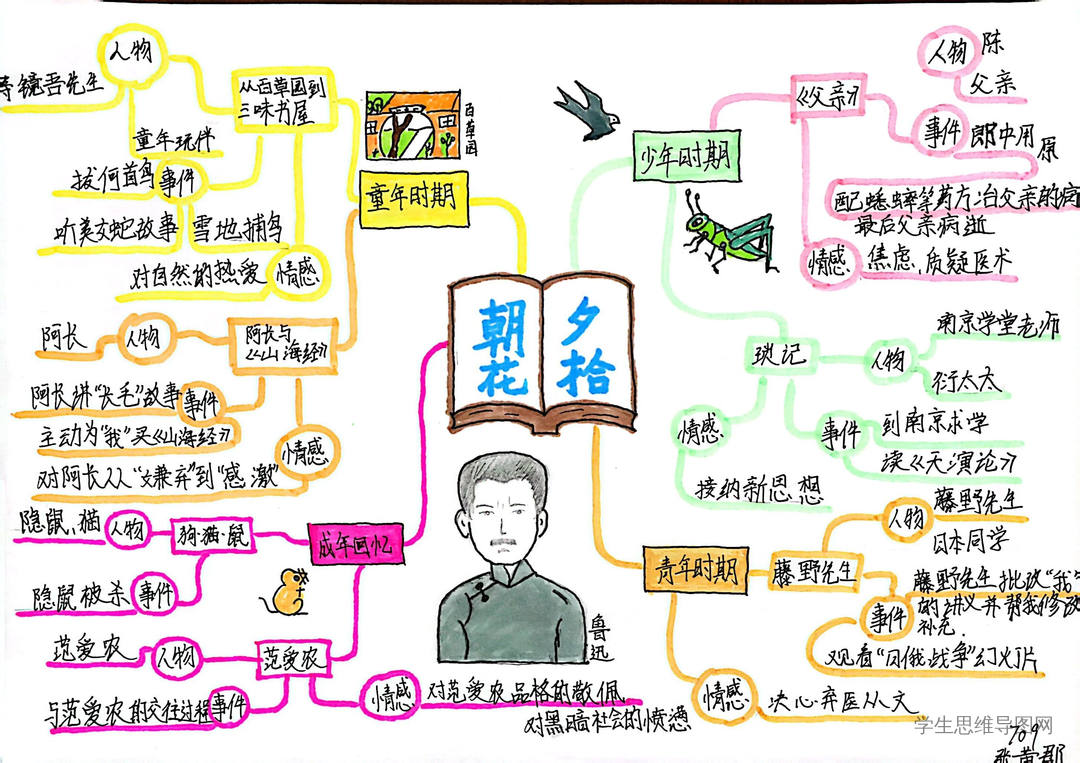 朝花
夕拾
童年时期
百草园
从百草园到
三味书屋
人物
寿镜吾先生
童年玩伴
事件
拔何首乌
听美女蛇故事
雪地捕鸟
情感
对自然的热爱
阿长与
《山海经》
人物
阿长
事件
阿长讲“长毛”故事
主动为“我”买《山海经》
情感
对阿长从“嫌弃”到“感激”
少年时期
《父亲》
人物
陈
父亲
事件
郎中用原
配蟋蟀等药方治父亲的病
最后父亲病逝
情感
焦虑,质疑医术
琐记
人物
南京学堂老师
衍太太
事件
到南京求学
读《天演论》
情感
接纳新思想
青年时期
藤野先生
人物
藤野先生
日本同学
事件
藤野先生批改“我”
的讲义并帮我修改
补充.
观看“日俄战争”幻灯片
情感
决心弃医从文
成年回忆
狗·猫·鼠
人物
隐鼠、猫
事件
隐鼠被杀
范爱农
人物
范爱农
事件
与范爱农的交往过程
情感
对范爱农品格的敬佩
对黑暗社会的愤懑
鲁迅
学生思维导图网
709